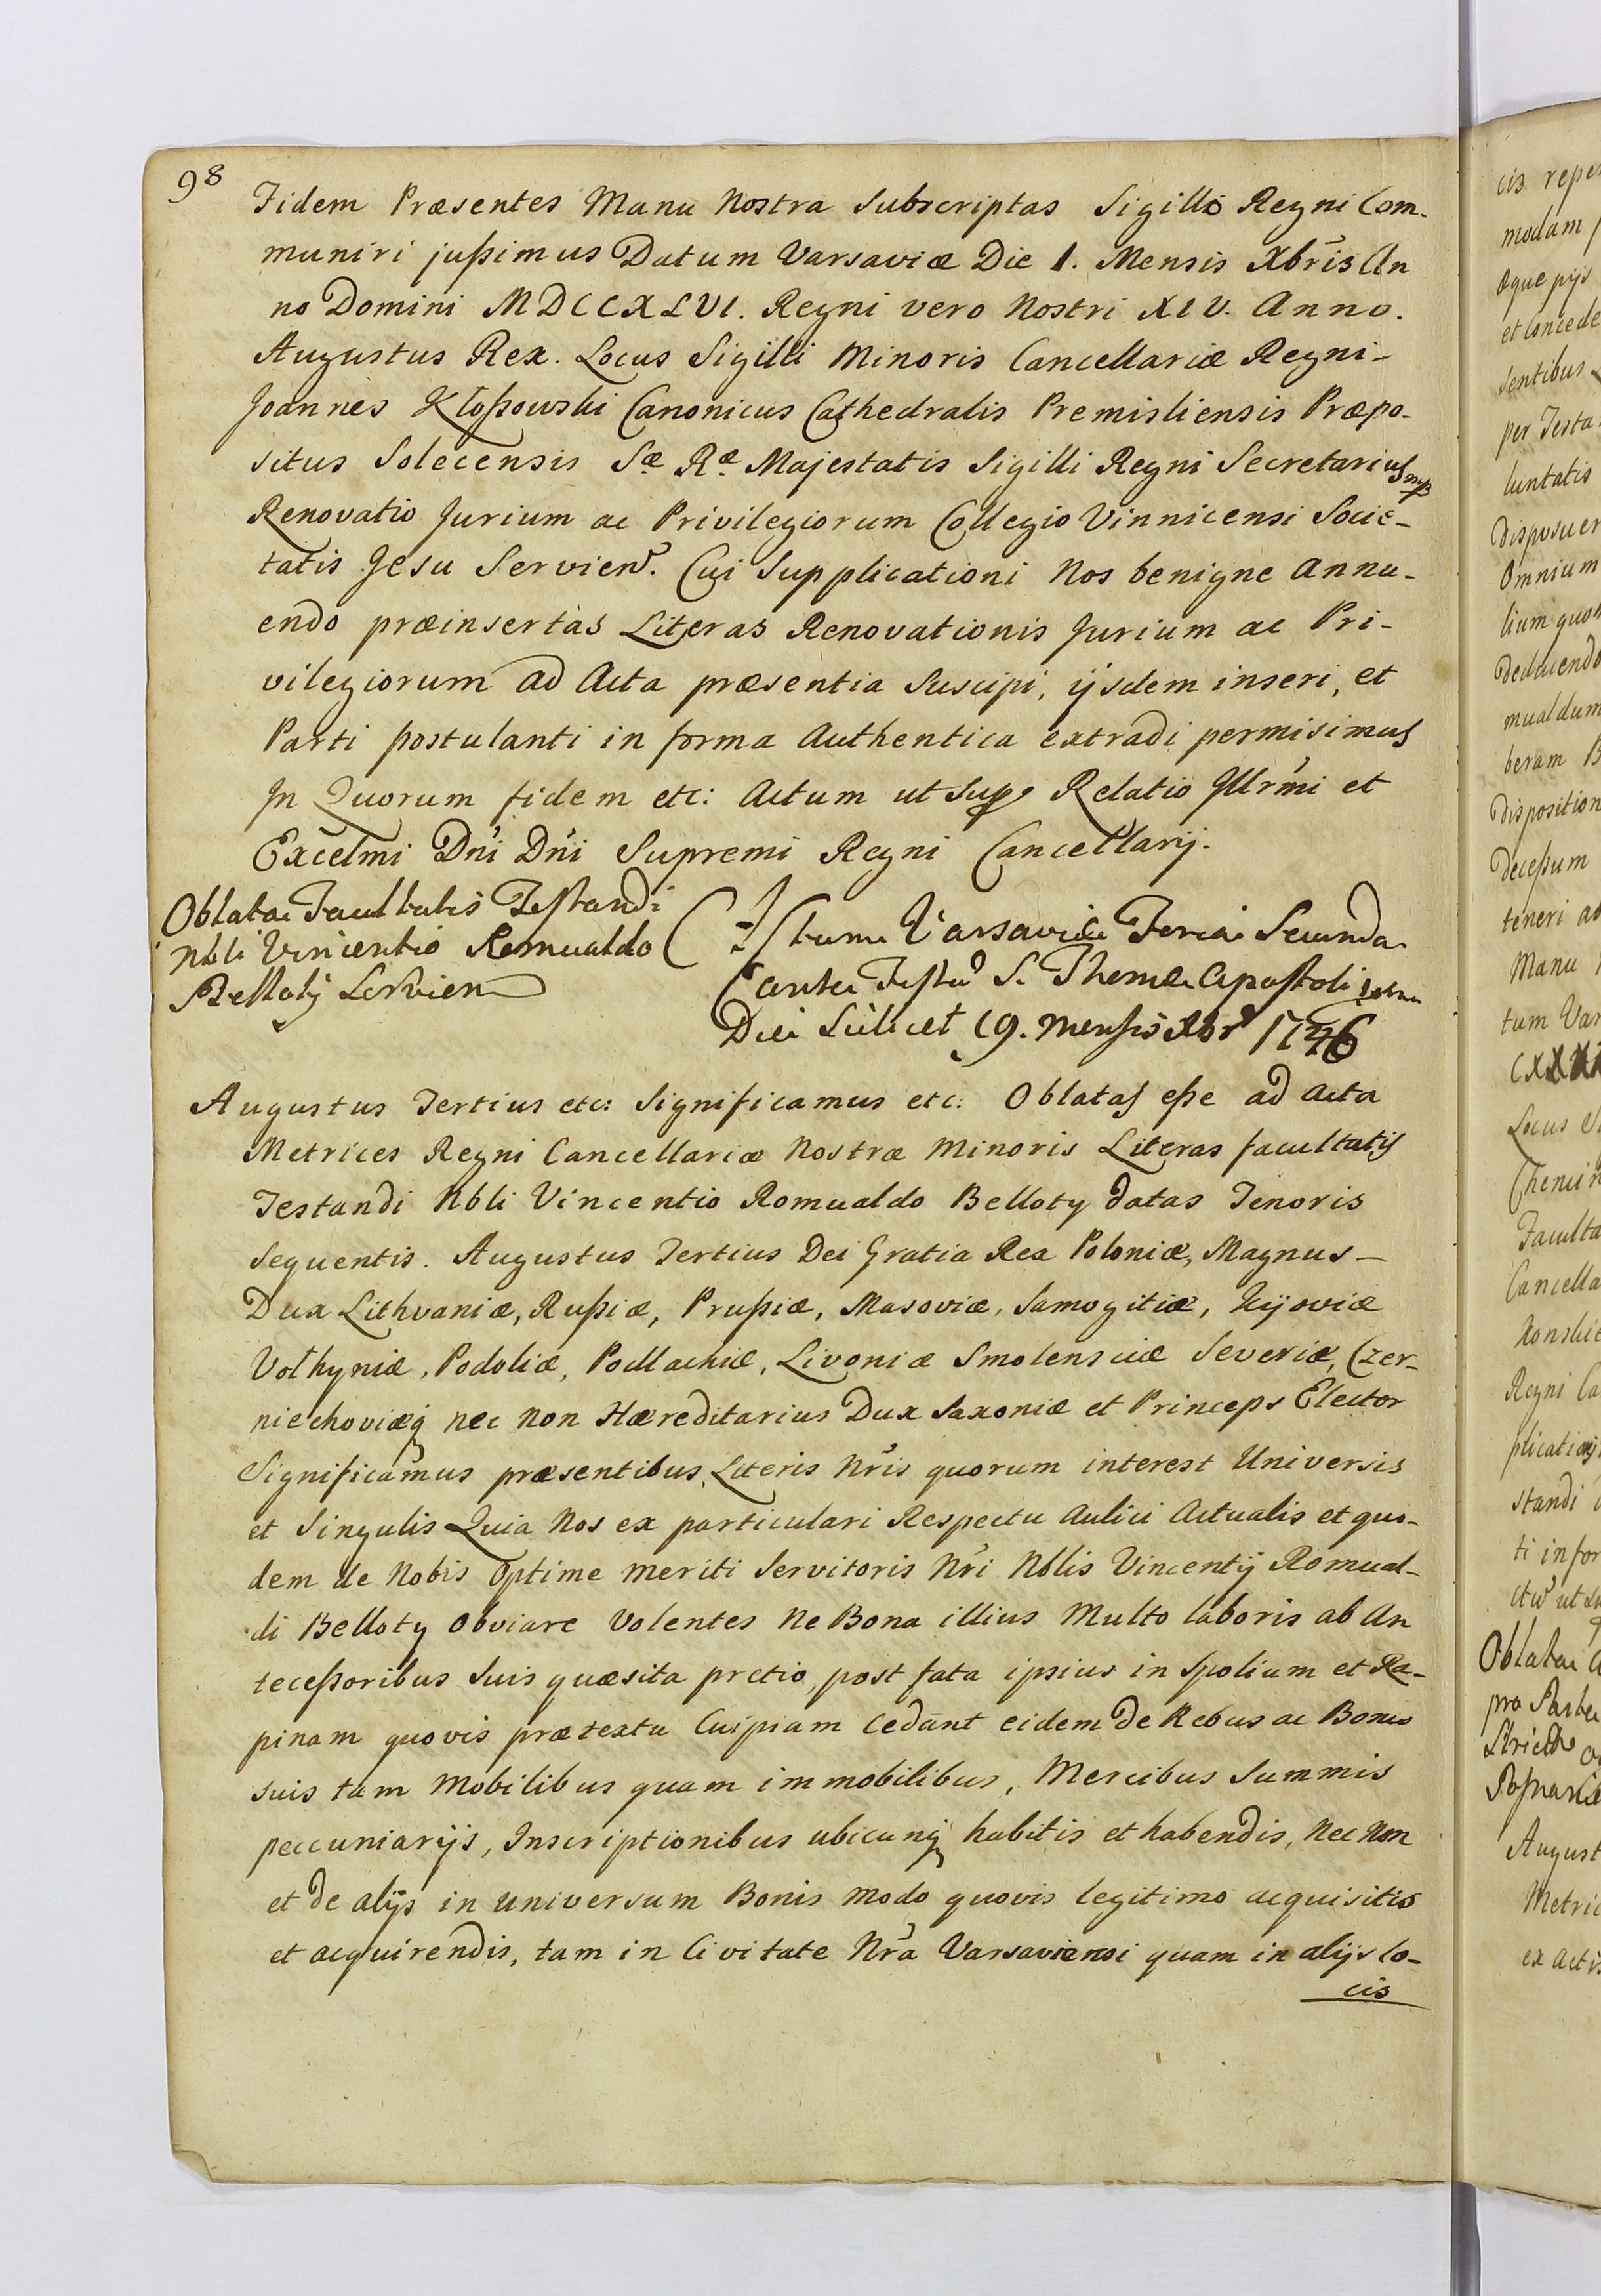 98
Fidem Præsentes Manu Nostra Subscriptas Sigillo Regni Com-
muniri jussimus Datum Varsaviæ Die 1. Mensis Xbris An
no Domini MDCCXLVI. Regni vero Nostri XIV. Anno.
Augustus Rex. Locus Sigilli Minoris Cancellariæ Regni-
Joannes Kłossowski Canonicus Cathedralis Premisliensis Præpo-
situs Solecensis Sæ Ræ Majestatis Sigilli Regni Secretarius mp
Renovatio Jurium ac Privilegiorum Collegio Vinnicensi Socie-
tatis Jesu Servien. Cui Supplicationi Nos benigne Annu-
endo præinsertas Literas Renovationis Jurium ac Pri-
vilegiorum ad Acta præsentia Suscipi, ijsdem inseri, et
Parti postulanti in forma Authentica extradi permisimus
In Quorum fidem etc: Actum ut Sup Relatio Illrmi et
Excelmi Dni Dni Supremi Regni Cancellarij.
Oblata Facultatis Testandi
Nbli Vincentio Romualdo
Belloty Servien
Actum Varsaviæ Feria Secunda
ante Festu S. Thomæ Apostoli
Die Scilicet 19. Mensis Xbr 1746
Augustus Tertius etc: Significamus etc: Oblatas esse ad Acta
Metrices Regni Cancellariæ Nostræ Minoris Literas facultatis
Testandi Nbli Vincentio Romualdo Belloty datas Tenoris
Sequentis. Augustus Tertius Dei Gratia Rex Poloniæ, Magnus-
Dux Lithvaniæ, Russiæ, Prussiæ, Masoviæ, Samogitiæ, Kijoviæ
Volhyniæ, Podoliæ, Podlachiæ, Livoniæ Smolensciæ Severiæ, Czer-
niechoviæq nec non Hæreditarius Dux Saxoniæ et Princeps Elector
Significamus præsentibus Literis Nris quorum interest Universis
et Singulis Quia Nos ex particulari Respectu Aulici Actualis et quo-
dem de Nobis Optime meriti Servitoris Nri Nblis Vincentij Romual-
di Belloty obviare Volentes Ne Bona illius Multo laboris ab An
tecessoribus Suis quæsita pretio, post fata ipsius in Spolium et Ra-
pinam quovis prætextu Cuipiam Cedant eidem De Rebus ac Bonis
suis tam Mobilibus quam immobilibus, Mercibus Summis
peccuniarijs, Inscriptionibus ubicunq habitis et habendis, Nec Non
et de alijs in universum Bonis modo quovis legitimo acquisitis
et acquirendis, tam in Civitate Nra Varsaviensi quam in alijs lo-
cis
cis
modam
æque pijs
et Concede
sentibus
per Testa
luntatis
disposuer
Omnium
lium quo
Deducendo
mualdum
beram B
disposition
decessum
teneri
Manu
tum Var
Locus
Faculta
Cancella
Regni Ca
standi
ti in for
ut
Oblata
pro Parte
August
Metric
ex Actis